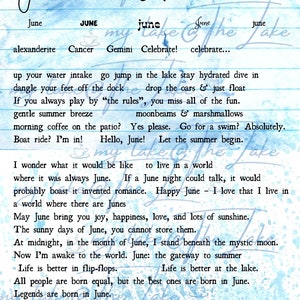 June JUNE june June june
alexanderite Cancer Gemini Celebrate! celebrate...
up your water intake go jump in the lake stay hydrated dive in
dangle your feet off the dock drop the oars & just float
If you always play by "the rules", you miss all of the fun.
gentle summer breeze moonbeams & marshmallows
morning coffee on the patio? Yes please. Go for a swim? Absolutely.
Boat ride? I'm in! Hello, June! Let the summer begin.
I wonder what it would be like to live in a world
where it was always June. If a June night could talk, it would
probably boast it invented romance. Happy June - I love that I live in
a world where there are Junes
May June bring you joy, happiness, love, and lots of sunshine.
The sunny days of June, you cannot store them.
At midnight, in the month of June, I stand beneath the mystic moon.
Now I'm awake to the world. June: the gateway to summer
Life is better in flip-flops. Life is better at the lake.
All people are born equal, but the best ones are born in June.
Legends are born in June.
my take @ the Lake